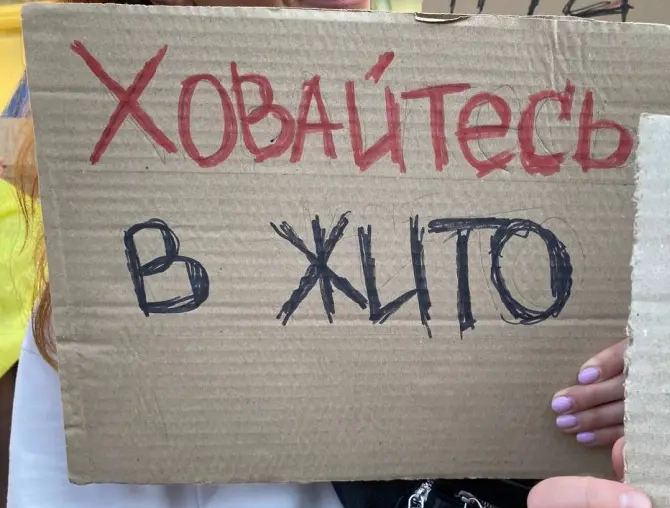 Ховайтесь
в жито